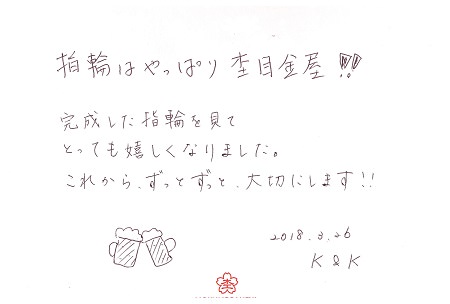 指輪はやっぱり杢目金屋!!
完成した指輪を見て
とっても嬉しくなりました。
これから、ずっとずっと、大切にします!!
2018.3.26
K & K